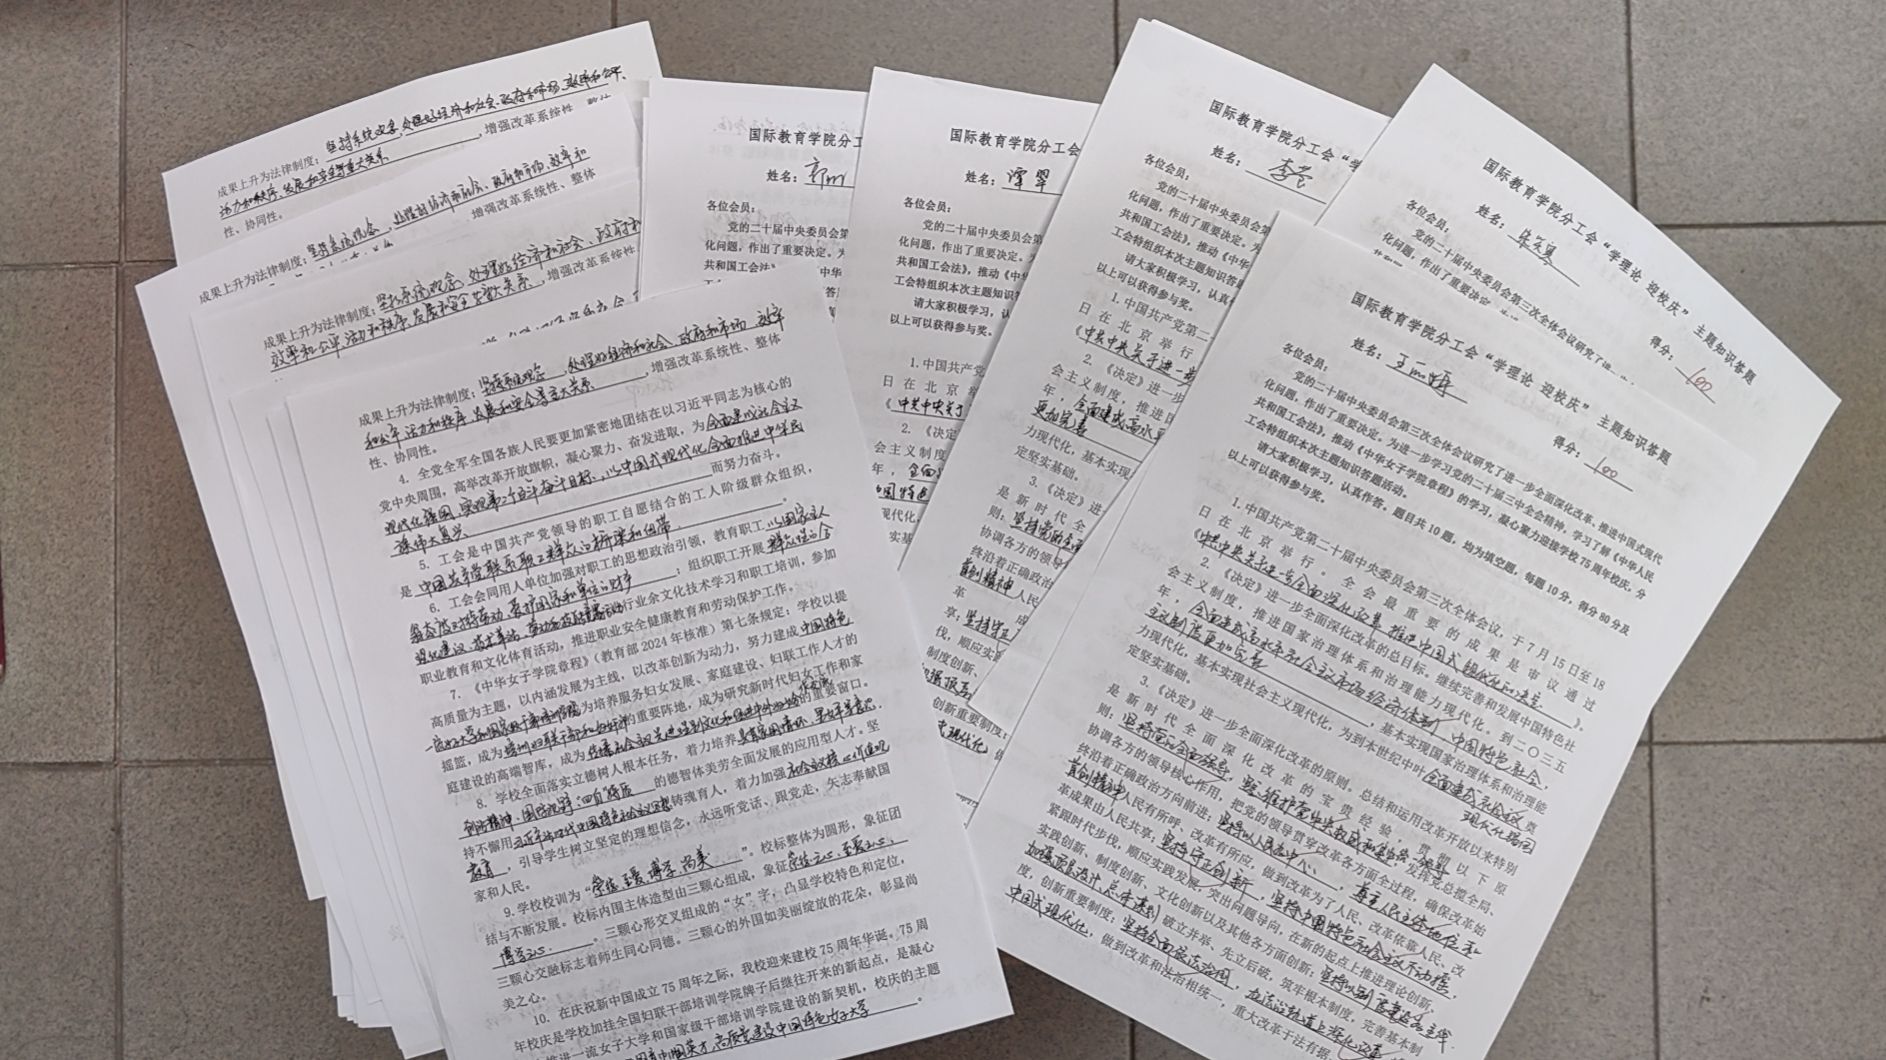 成果上升为法律制度；坚持系统观念，处理好经济和社会、政府和市场、效率和公平、
活力和秩序、发展和安全等重大关系，增强改革系统性、整体
性、协同性。
成果上升为法律制度；坚持系统观念，处理好经济和社会、政府和市场、效率和
增强改革系统性、整体
成果上升为法律制度；坚持系统观念，处理好经济和社会、政府和
效率和公平、活力和秩序、发展和安全等重大关系，增强改革系统性、
成果上升为法律制度；坚持系统观念，处理好经济和社会、政府和市场、效率
和公平、活力和秩序、发展和安全等重大关系，增强改革系统性、整体
性、协同性。
4. 全党全军全国各族人民要更加紧密地团结在以习近平同志为核心的
党中央周围，高举改革开放旗帜，凝心聚力、奋发进取，为全面建成社会主义
现代化强国、实现第二个百年奋斗目标，以中国式现代化全面推进中华民
族伟大复兴而努力奋斗。
5. 工会是中国共产党领导的职工自愿结合的工人阶级群众组织，
是中国共产党联系职工群众的桥梁和纽带。
6. 工会会同用人单位加强对职工的思想政治引领，教育职工以国家主人
翁态度对待劳动，爱护国家和单位的财产；组织职工开展群众性的合
理化建议、技术革新、劳动和技能竞赛活动，进行业余文化技术学习和职工培训，参加
职业教育和文化体育活动，推进职业安全健康教育和劳动保护工作。
7. 《中华女子学院章程》（教育部 2024 年核准）第七条规定：学校以提
高质量为主题，以内涵发展为主线，以改革创新为动力，努力建成中国特色
一流女子大学和国家级干部培训学院，为培养服务妇女发展、家庭建设、妇联工作人才的
摇篮，成为培训妇联干部和的重要阵地，成为研究新时代妇女工作和家
庭建设的高端智库，成为传播社会主义先进性别文化和的重要窗口。
8. 学校全面落实立德树人根本任务，着力培养具有家国情怀、
创新精神、国际视野、"四自"特质的德智体美劳全面发展的应用型人才。坚
持不懈用习近平新时代中国特色社会主义思想铸魂育人，着力加强社会主义核心价值观
教育，引导学生树立坚定的理想信念，永远听党话、跟党走，矢志奉献国
家和人民。
9. 学校校训为"崇德、至爱、博学、尚美"。校标整体为圆形，象征团
结与不断发展。校标内围主体造型由三颗心组成，象征崇德之心、至爱之心、
博学之心。三颗心形交叉组成的"女"字，凸显学校特色和定位，
三颗心交融标志着师生同心同德。三颗心的外围如美丽绽放的花朵，彰显尚
美之心。
10. 在庆祝新中国成立 75 周年之际，我校迎来建校 75 周年华诞。75 周
年校庆是学校加挂全国妇联干部培训学院牌子后继往开来的新起点，是凝心
推进一流女子大学和国家级干部培训学院建设的新契机，校庆的主题
育巾帼英才，高质量建设中国特色女子大学。
国际教育学院分工
姓名：
各位会员：
党的二十届中央委员会第
化问题，作出了重要决定。为
共和国工会法》，推动《中华
国际教育学院分工会
姓名：谭翠
各位会员：
党的二十届中央委员会第
化问题，作出了重要决定。
共和国工会法》，推动《中
工会特组织本次主题知识答
请大家积极学习，认真
以上可以获得参与奖。
1. 中国共产党
日在北京举行
《中共中央关于
2. 《决定
会主义制度
年，全面
国际教育学院分工会"学
姓名：李莹
各位会员：
党的二十届中央委员会第三
化问题，作出了重要决定。
共和国工会法》，推动《中华
工会特组织本次主题知识答
请大家积极学习，认真作
以上可以获得参与奖。
1. 中国共产党第二
日在北京举行
《中共中央关于进一步
2. 《决定》进一步
会主义制度，推进国
年，全面建成高水平
更加完善
力现代化，基本实现
定坚实基础。
3. 《决定》进
是新时代全
则：坚持党的全面
协调各方的领导
终沿着正确政治
首创精神，人民
国际教育学院分工会"学理论 迎校庆"主题知识答题
姓名： 得分：100
各位会员：
党的二十届中央委员会第三次全体会议研究了进
化问题，作出了重要决定
国际教育学院分工会"学理论 迎校庆"主题知识答题
姓名： 得分：100
各位会员：
党的二十届中央委员会第三次全体会议研究了进一步全面深化改革、推进中国式现代
化问题，作出了重要决定。为进一步学习党的二十届三中全会精神，学习了解《中华人民
共和国工会法》，推动《中华女子学院章程》的学习，凝心聚力迎接学校 75 周年校庆，分
工会特组织本次主题知识答题活动。
请大家积极学习，认真作答。题目共 10 题，均为填空题，每题 10 分，得分 80 分及
以上可以获得参与奖。
1. 中国共产党第二十届中央委员会第三次全体会议，于 7 月 15 日至 18
日在北京举行。全会最重要的成果是审议通过
《中共中央关于进一步全面深化改革 推进中国式现代化的决定》。
2. 《决定》进一步全面深化改革的总目标。继续完善和发展中国特色社
会主义制度，推进国家治理体系和治理能力现代化。到二〇三五
年，全面建成高水平社会主义市场经济体制，中国特色社会
主义制度更加完善，基本实现国家治理体系和治理能
力现代化，基本实现社会主义现代化，为到本世纪中叶全面建成社会主义现代化强国奠
定坚实基础。
3. 《决定》进一步全面深化改革的原则。总结和运用改革开放以来特别
是新时代全面深化改革的宝贵经验，贯彻以下原
则：坚持党的全面领导，坚定维护党中央权威和集中统一领导，发挥党总揽全局、
协调各方的领导核心作用，把党的领导贯穿改革各方面全过程，确保改革始
终沿着正确政治方向前进；坚持以人民为中心，尊重人民主体地位和
首创精神，人民有所呼、改革有所应，做到改革为了人民、改革依靠人民、改
革成果由人民共享；坚持守正创新，坚持中国特色社会主义不动摇，
紧跟时代步伐，顺应实践发展，突出问题导向，在新的起点上推进理论创新、
实践创新、制度创新、文化创新以及其他各方面创新；坚持以制度建设为主线，
加强顶层设计、总体谋划，破立并举、先立后破，筑牢根本制度，完善基本制
度，创新重要制度；坚持全面依法治国，在法治轨道上深化改革、推进
中国式现代化，做到改革和法治相统一，重大改革于法有据